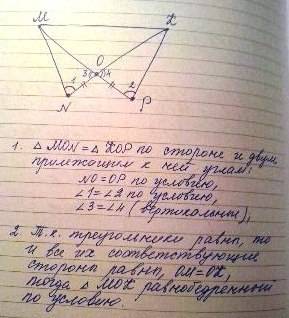 M K
O
1 3 4 2
N P
1. △ MON = △ KOP по стороне и двум
прилежащим к ней углам:
NO = OP по условию,
∠1 = ∠2 по условию,
∠3 = ∠4 (вертикальные),
2. Т.к. треугольники равны, то
и все их соответствующие
стороны равны, OM = OK,
тогда △ MOK равнобедренный
по условию.